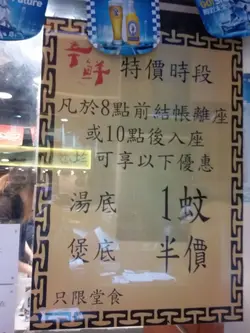 特價時段
凡於8點前結帳離座
或10點後入座
可享以下優惠
湯底 1蚊
煲底 半價
只限堂食